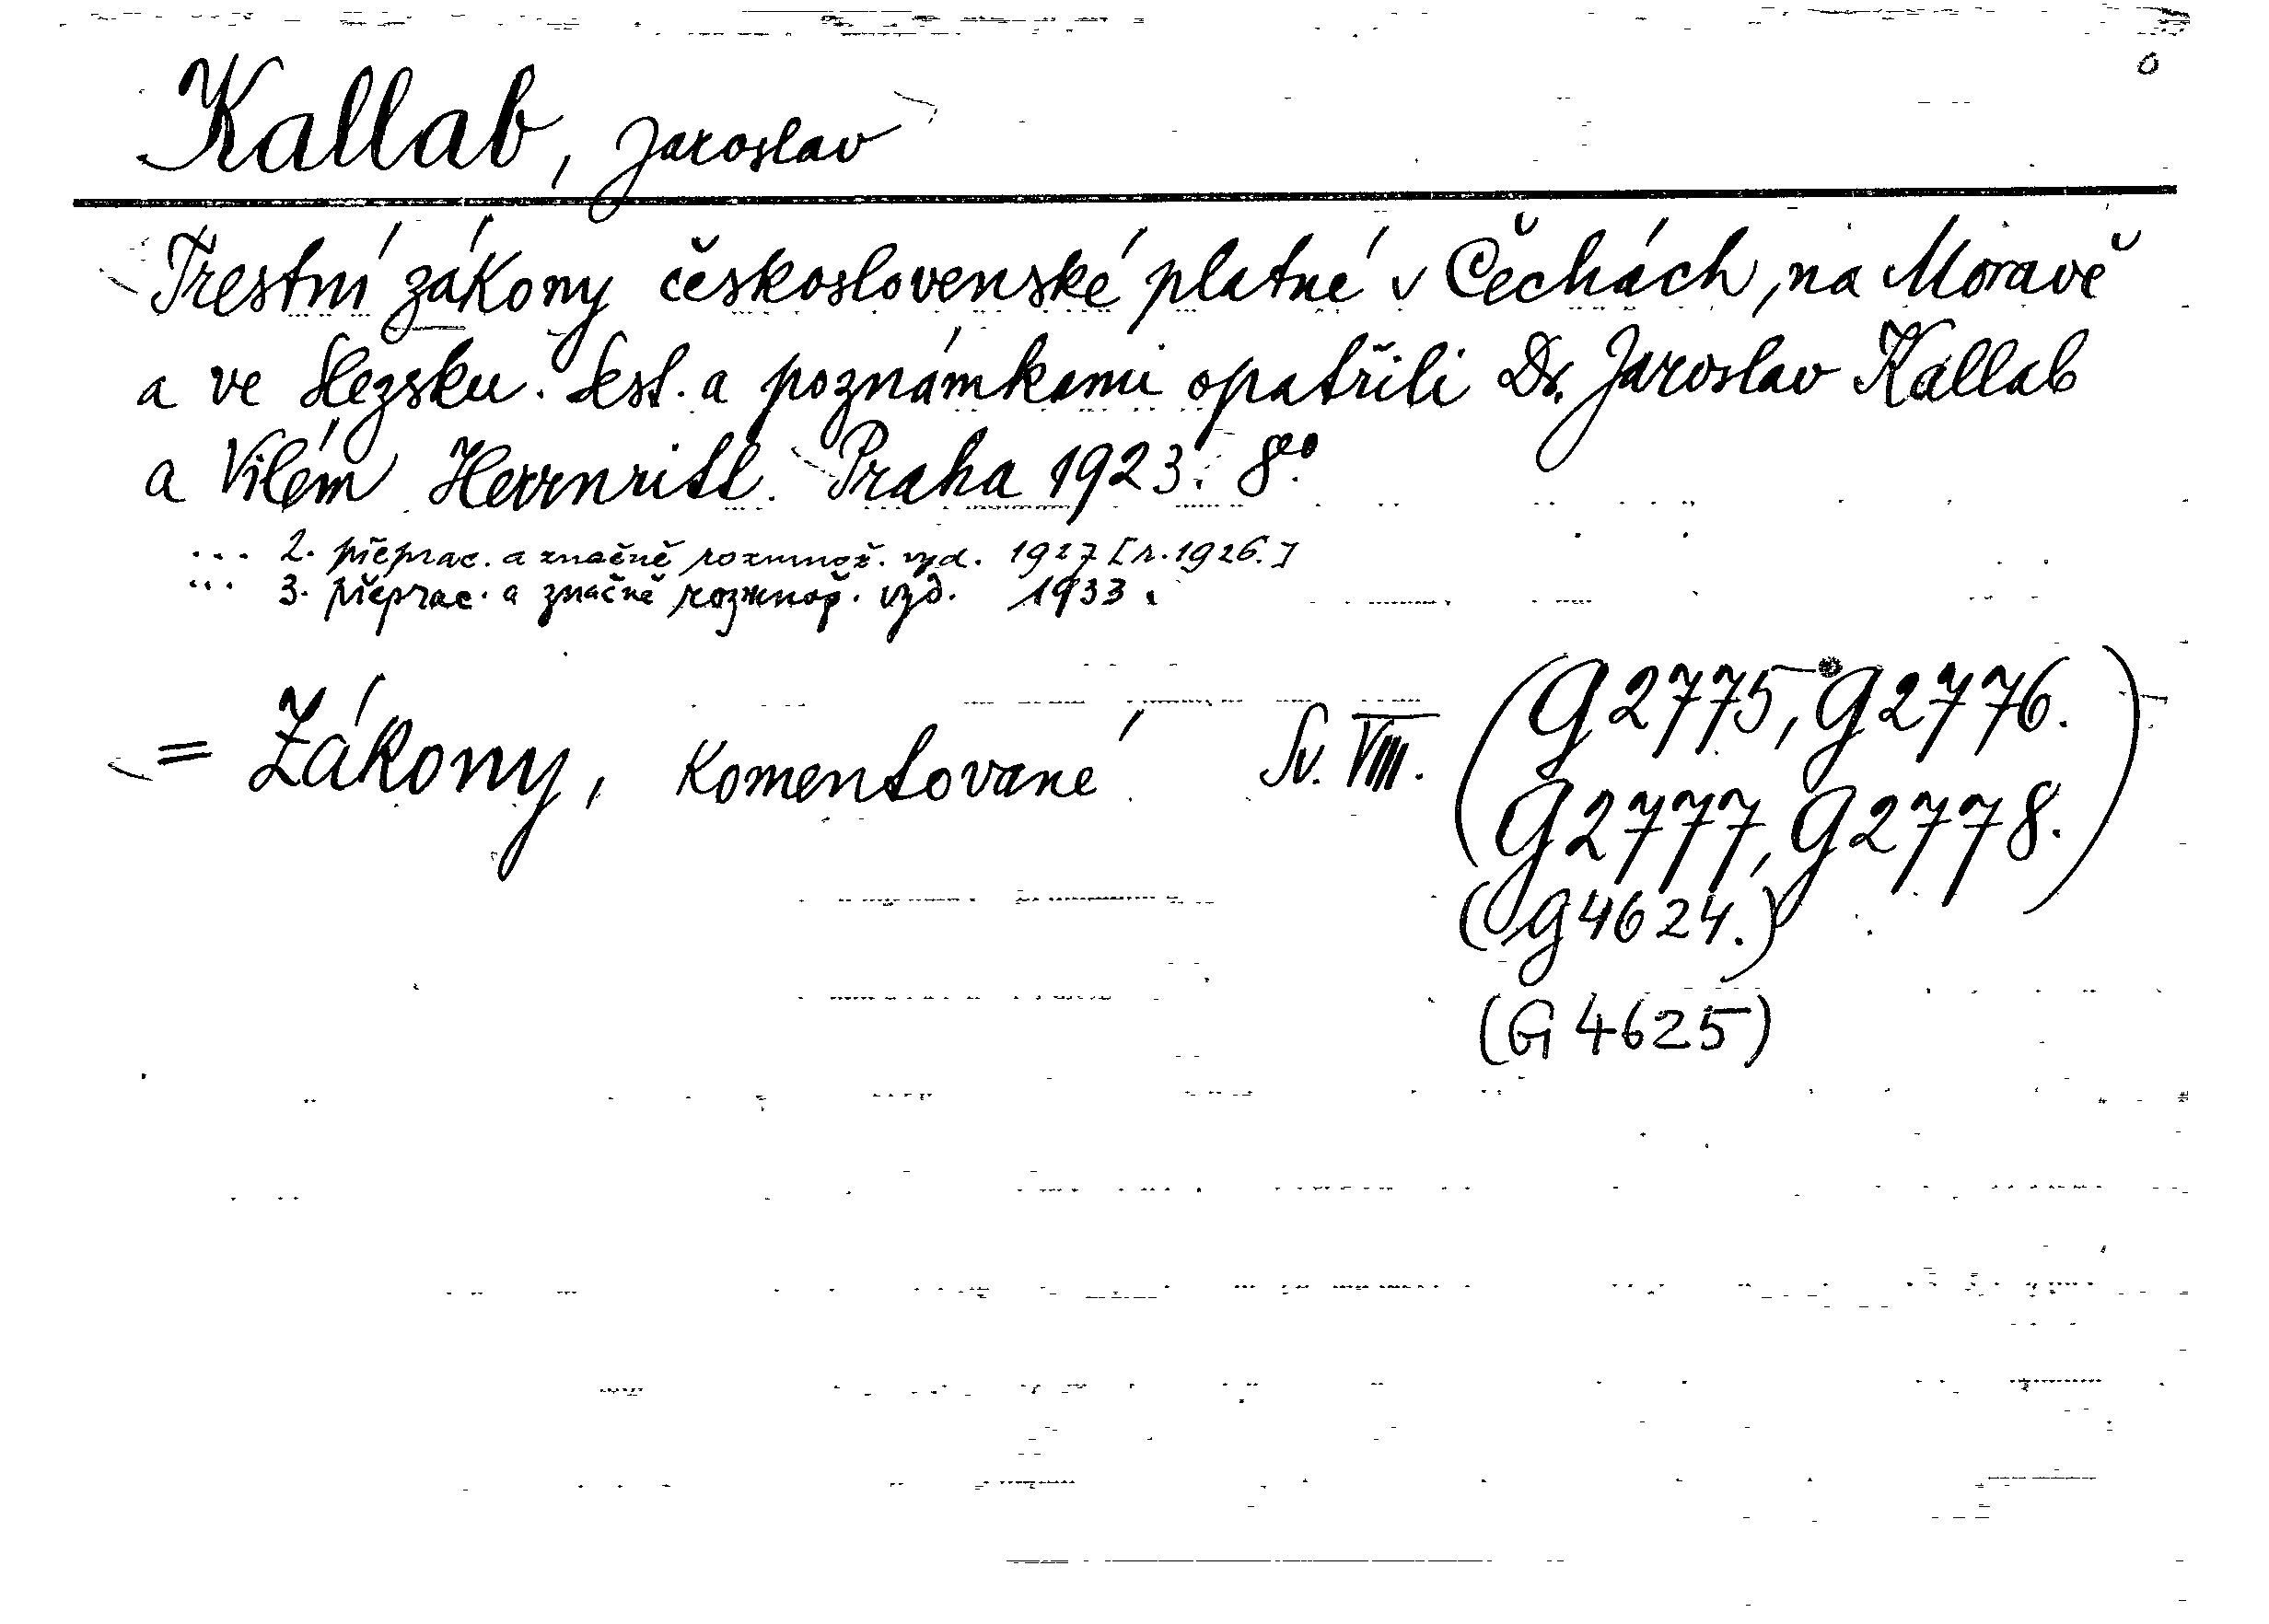 Kallab, Jaroslav
Trestní zákony československé platné v Čechách, na Moravě
a ve Slezsku. Sest. a poznámkami opatřili Dr. Jaroslav Kallab
a Vilém Herrnritt. Praha 1923. 8º.
... 2. přeprac. a značně rozmnož. vyd. 1927 [r. 1926.]
... 3. přeprac. a značně rozmnož. vyd. 1933.
= Zákony, komentované Sv. VIII. (G2775, G2776.
G2777, G2778.)
(G4624.)
(G4625)